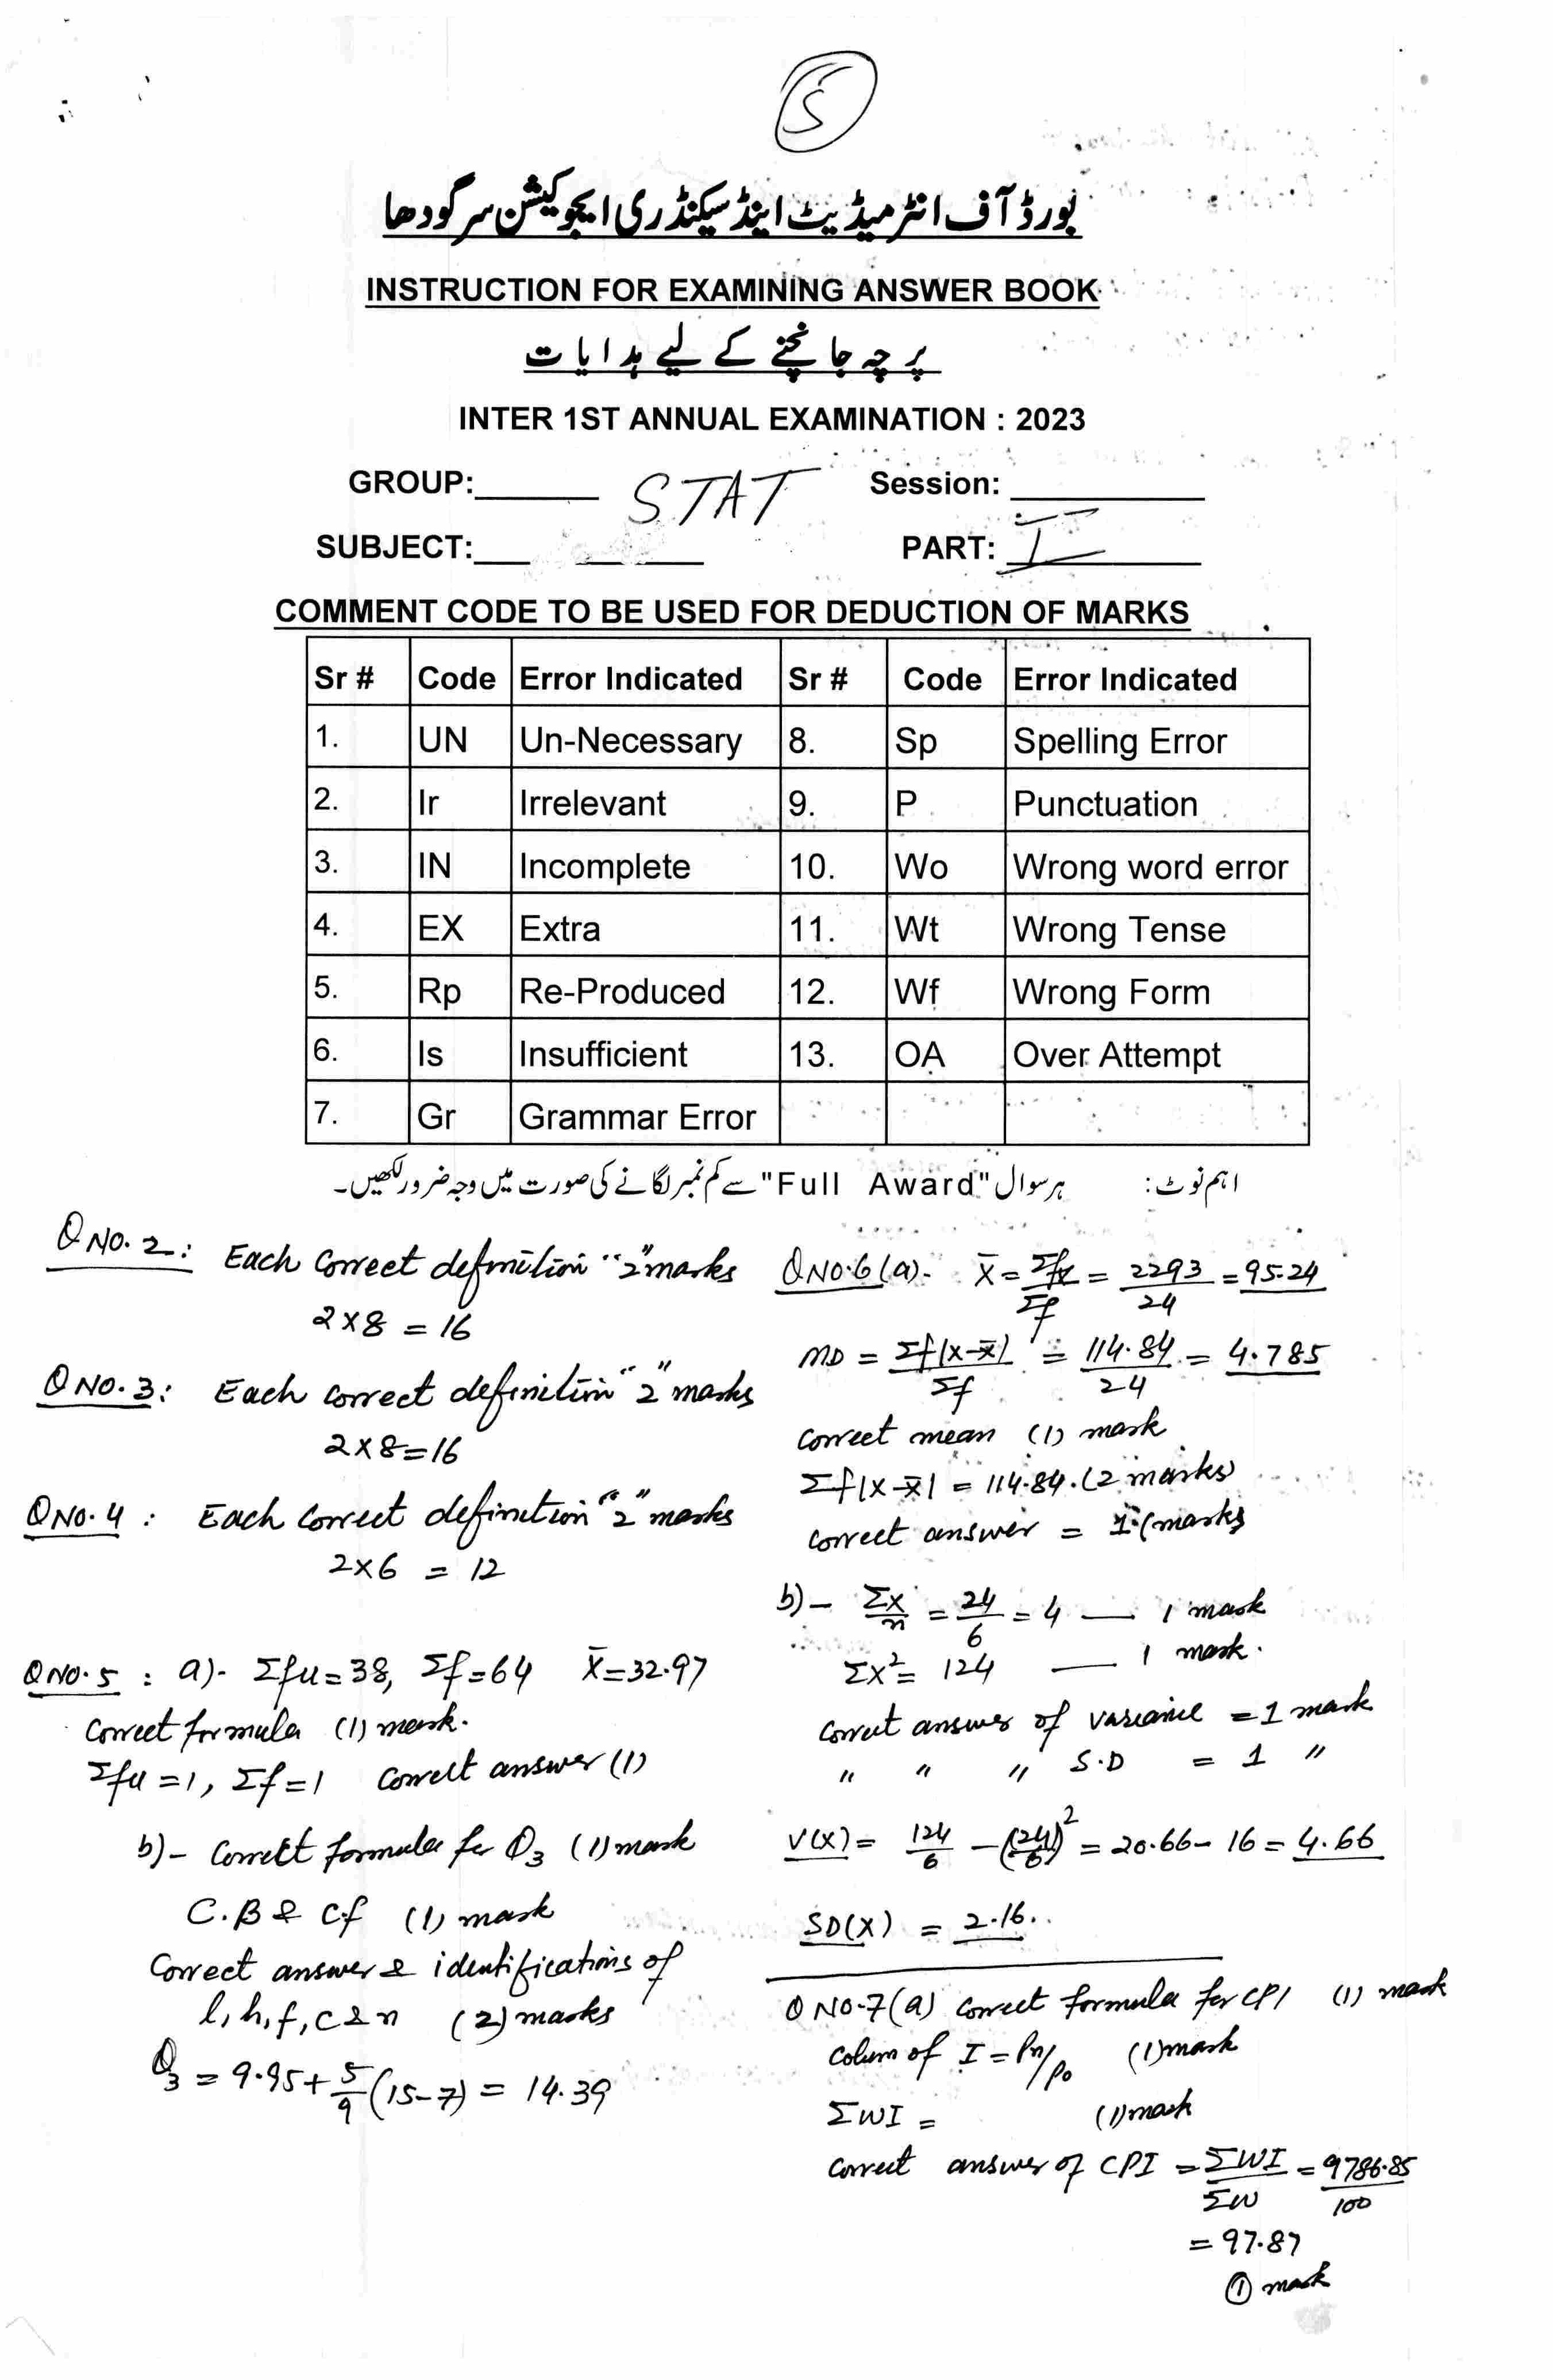 5
بورڈ آف انٹرمیڈیٹ اینڈ سیکنڈری ایجوکیشن سرگودھا
INSTRUCTION FOR EXAMINING ANSWER BOOK
پرچہ جانچنے کے لیے ہدایات
INTER 1ST ANNUAL EXAMINATION : 2023
GROUP:______ STAT Session: ______
SUBJECT:______ PART: I
COMMENT CODE TO BE USED FOR DEDUCTION OF MARKS
Sr # Code Error Indicated Sr # Code Error Indicated
1. UN Un-Necessary 8. Sp Spelling Error
2. Ir Irrelevant 9. P Punctuation
3. IN Incomplete 10. Wo Wrong word error
4. EX Extra 11. Wt Wrong Tense
5. Rp Re-Produced 12. Wf Wrong Form
6. Is Insufficient 13. OA Over Attempt
7. Gr Grammar Error
اہم نوٹ: ہر سوال "Full Award" سے کم نمبر لگانے کی صورت میں وجہ ضرور لکھیں۔
Q NO. 2: Each correct definition "2" marks
2 x 8 = 16
Q NO. 3: Each correct definition "2" marks
2 x 8 = 16
Q NO. 4 : Each correct definition "2" marks
2 x 6 = 12
Q NO. 5 : a)- Σfu = 38, Σf = 64 X̄ = 32.97
Correct formula (1) mark.
Σfu = 1, Σf = 1 Correct answer (1)
b)- Correct formula for Q₃ (1) mark
C.B & C.f (1) mark
Correct answer & identifications of
l, h, f, c & n (2) marks
Q₃ = 9.95 + 5/9 (15-7) = 14.39
Q NO. 6 (a)- X̄ = Σfx/Σf = 2293/24 = 95.24
MD = Σf|x-x̄|/Σf = 114.84/24 = 4.785
Correct mean (1) mark
Σf|x-x̄| = 114.84. (2 marks)
Correct answer = 1 (marks)
b)- Σx/n = 24/6 = 4 — 1 mark
Σx² = 124 — 1 mark.
Correct answer of variance = 1 mark
" " " S.D = 1 "
V(X) = 124/6 - (24/6)² = 20.66 - 16 = 4.66
SD(X) = 2.16.
Q NO. 7 (a) Correct formula for CPI (1) mark
Colum of I = Pn/Po (1) mark
ΣWI = (1) mark
Correct answer of CPI = ΣWI/ΣW = 9786.85/100
= 97.87
① mark